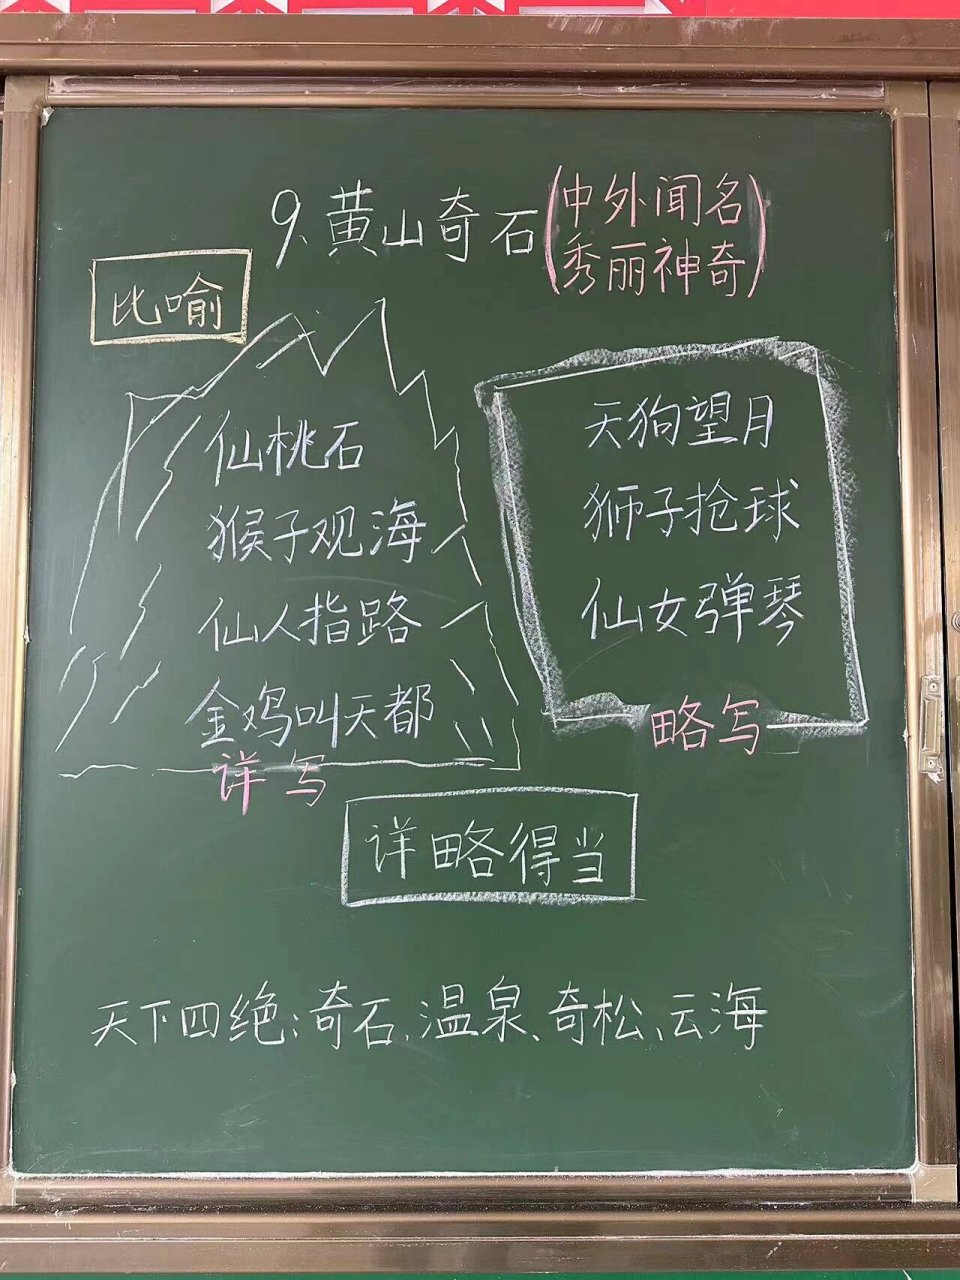 9、黄山奇石(中外闻名
秀丽神奇)
比喻
仙桃石
猴子观海
仙人指路
金鸡叫天都
详写
天狗望月
狮子抢球
仙女弹琴
略写
详略得当
天下四绝:奇石、温泉、奇松、云海